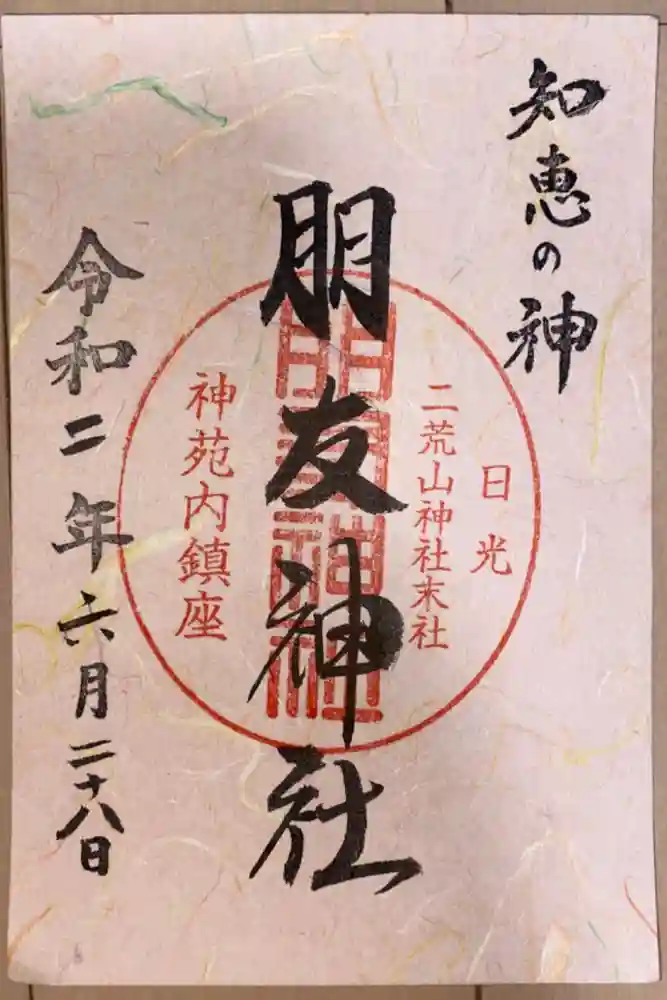 知恵の神
日光
二荒山神社末社
朋友神社
朋友神社
神苑内鎮座
令和二年六月二十八日